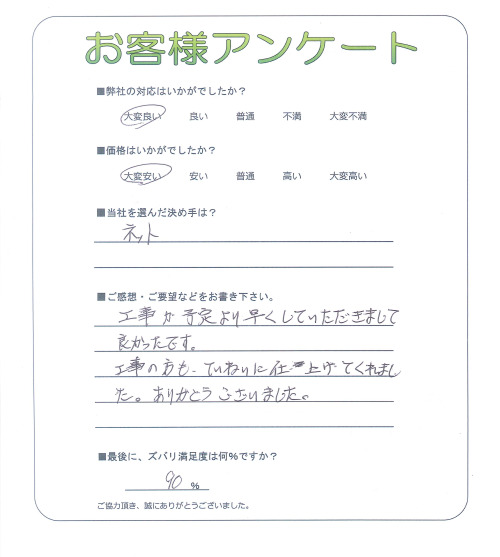 お客様アンケート
■弊社の対応はいかがでしたか？
大変良い 良い 普通 不満 大変不満
■価格はいかがでしたか？
大変安い 安い 普通 高い 大変高い
■当社を選んだ決め手は？
ネット
■ご感想・ご要望などをお書き下さい。
工事が予定より早くしていただきまして
良かったです。
工事の方も、ていねいに仕上げてくれまし
た。ありがとうございました。
■最後に、ズバリ満足度は何%ですか？
90 %
ご協力頂き、誠にありがとうございました。